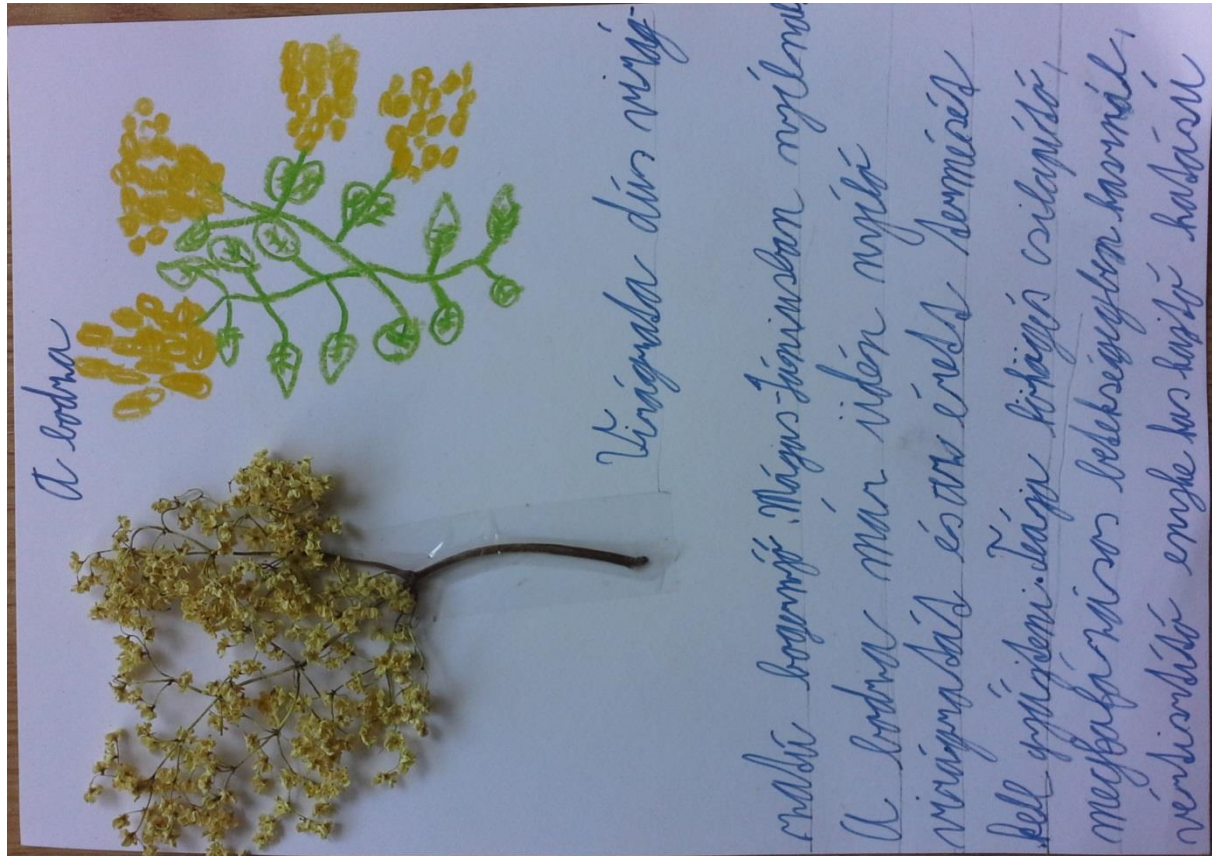 A bodza
Virágzata dús virág-
zatú bogernyő. Május-Júniusban nyílnak
A bodza már üdén nyíló
virágzatát és az érett termését
kell gyűjteni. Teája köhögés csilapító,
megfázásos betekségekben használ,
vértisztító enyhe has hajtó hatású